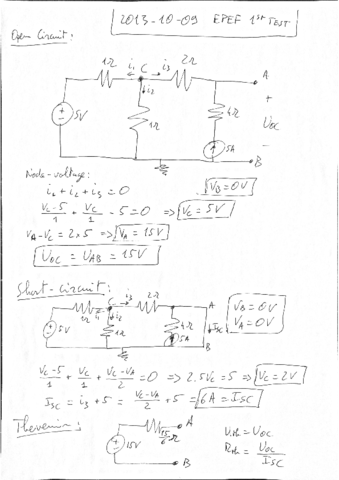 2013-10-09 EPEF 1ST TEST
Open Circuit:
1Ω i1 C i3 2Ω A
i2 +
5V 1Ω 4Ω UOC
5A -
B
Node-voltage:
i1 + i2 + i3 = 0 VB = 0V
VC-5/1 + VC/1 - 5 = 0 => VC = 5V
VA - VC = 2×5 => VA = 15V
UOC = UAB = 15V
Short-circuit:
1Ω i1 C i3 2Ω A VB = 0V
5V i2 1Ω 4Ω ISC VA = 0V
5A B
VC-5/1 + VC/1 + VC-VA/2 = 0 => 2.5VC = 5 => VC = 2V
ISC = i3 + 5 = VC-VA/2 + 5 = 6A = ISC
Thevenin:
15V 15/6 Ω A Uth = UOC
B Rth = UOC/ISC